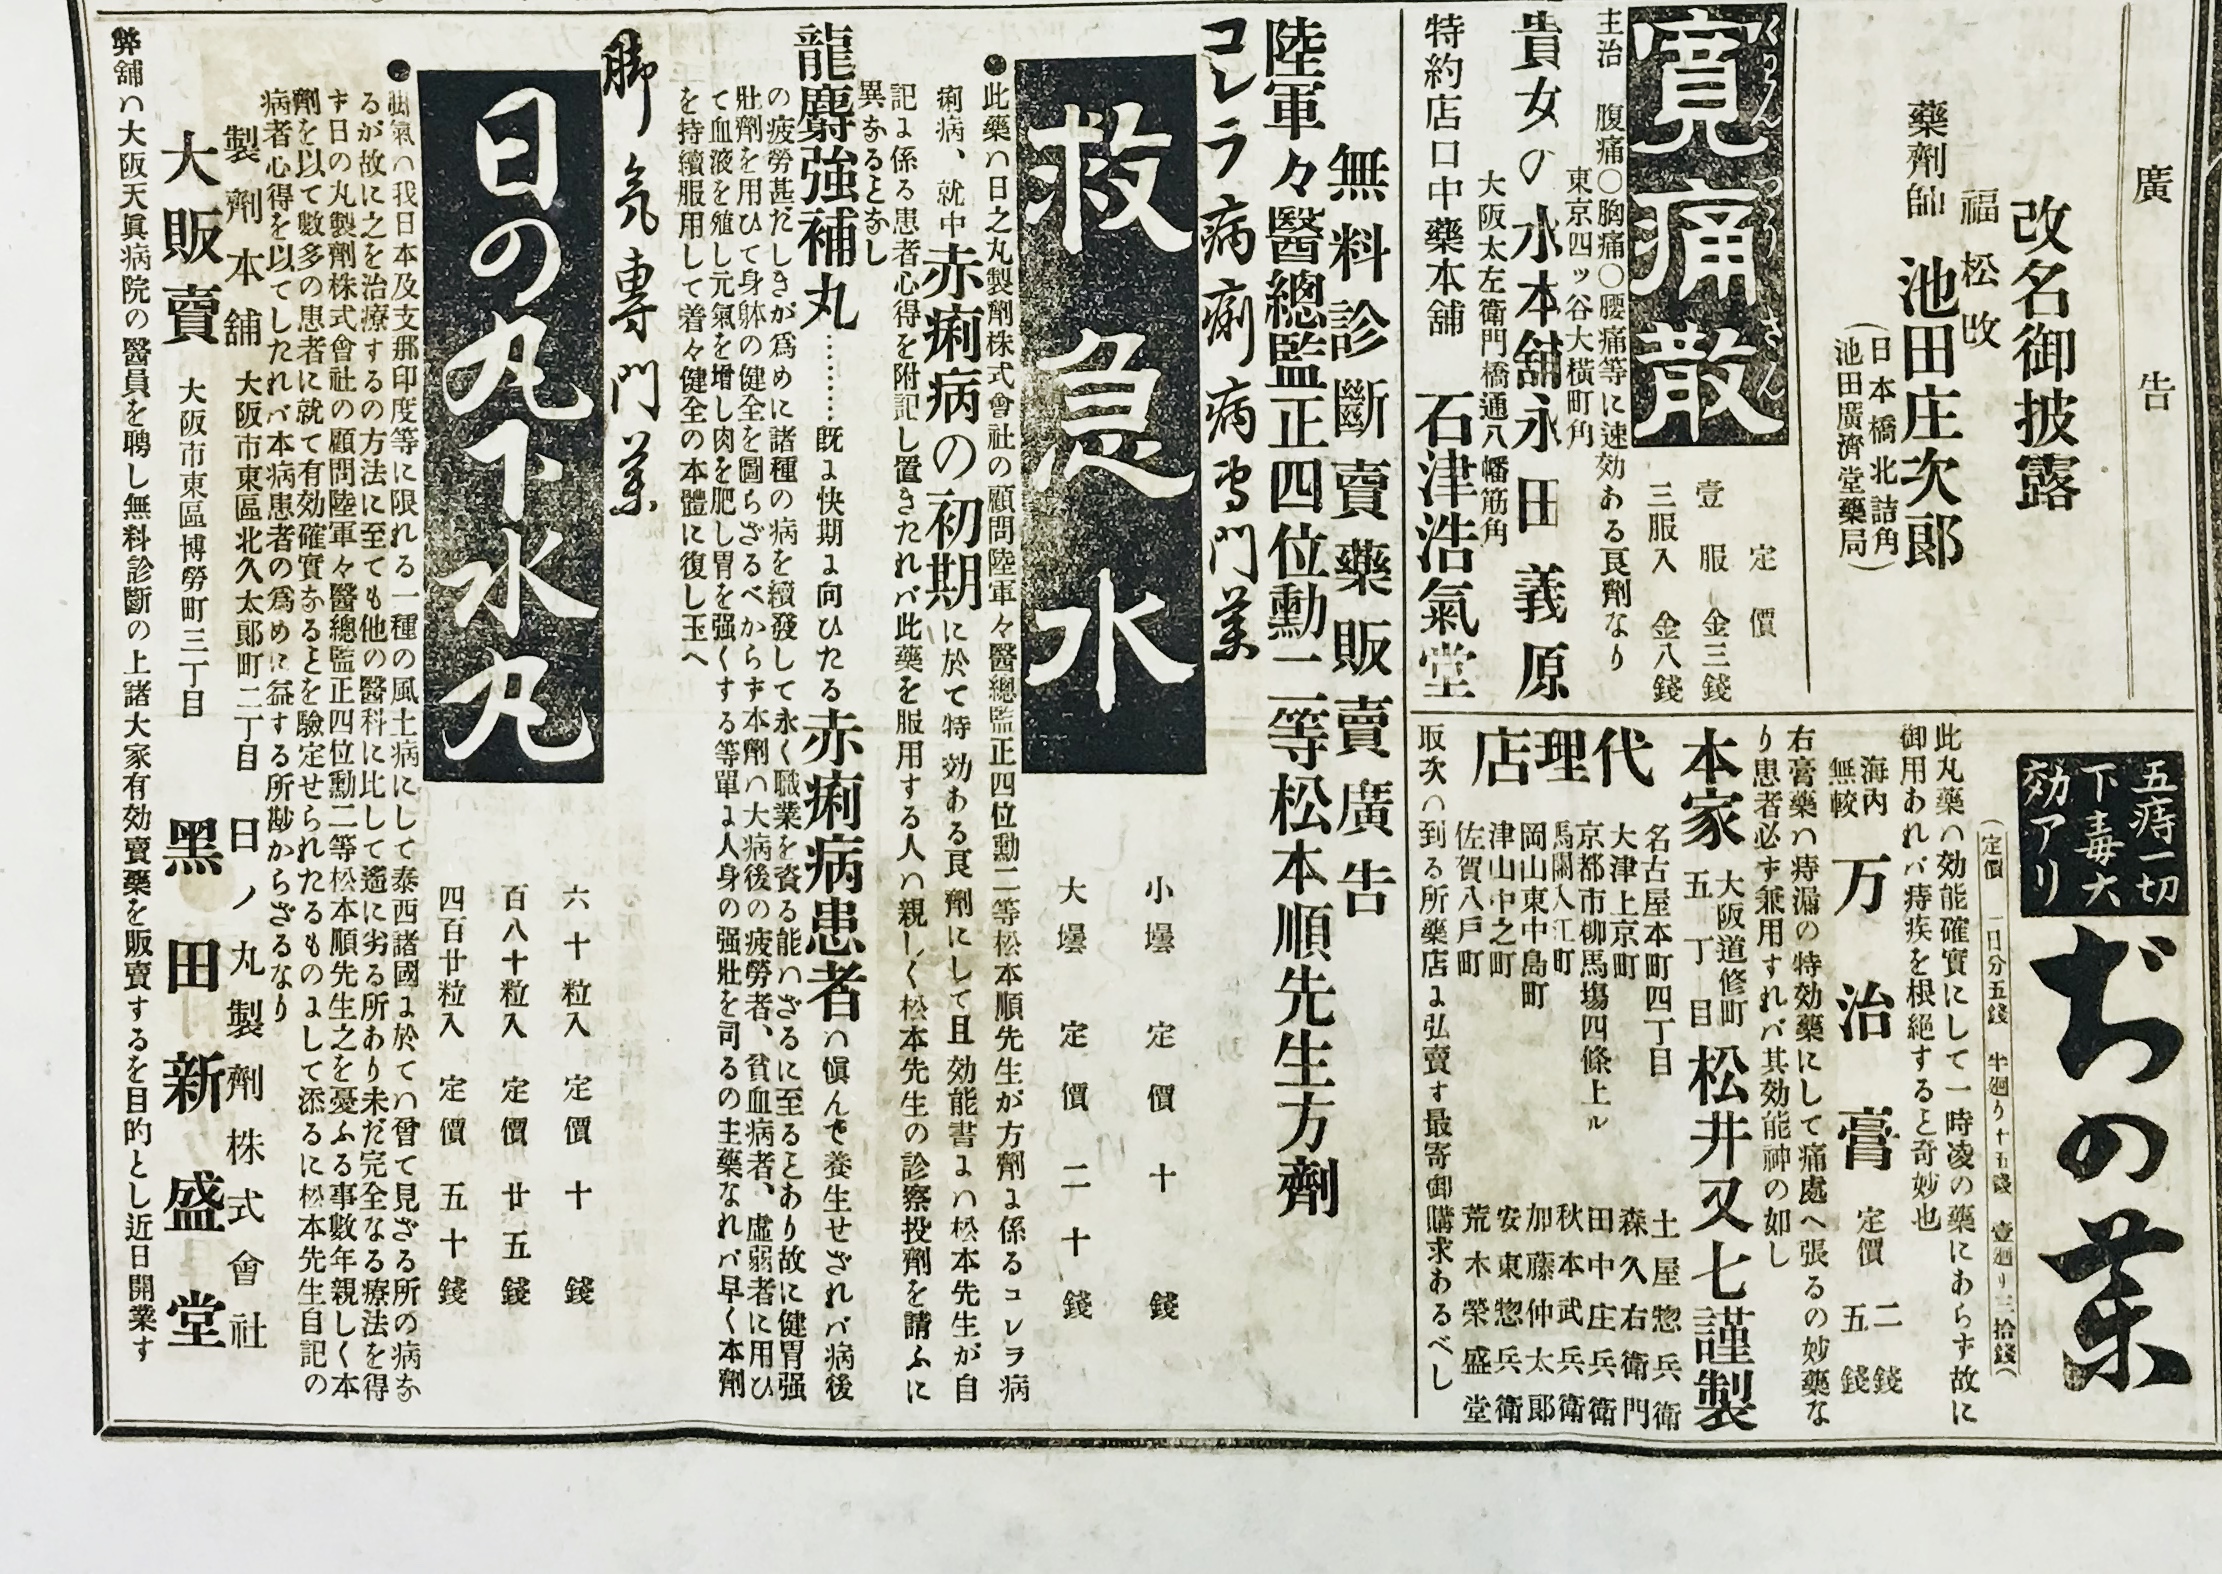 廣告
改名御披露
福松改
藥劑師 池田庄次郎
(日本橋北詰角
池田廣濟堂藥局)
寛痛散
くわんつうさん
定價
壹服 金三錢
三服入 金八錢
主治 腹痛〇胸痛〇腰痛等に速効ある良劑なり
東京四ッ谷大横町角
貴女の水本舗永田義原
大阪太左衛門橋通八幡筋角
特約店口中藥本舗 石津浩氣堂
五痔一切
下毒六
効アリ
ぢの薬
(定價 一日分五錢 半廻り十五錢 壹廻り三拾錢)
此丸藥ハ効能確實にして一時凌の藥にあらす故に
御用あれバ痔疾を根絶すると奇妙也
海内無較 万治膏 定價 二錢 五錢
右膏藥ハ痔漏の特効藥にして痛處へ張るの妙藥な
り患者必す兼用すれバ其効能神の如し
本家 大阪道修町五丁目 松井又七謹製
代理店
名古屋本町四丁目 土屋惣兵衛
大津上京町 森久右衛門
京都市柳馬塲四條上ル 田中庄兵衛
馬關入江町 秋本武兵衛
岡山東中島町 加藤仲太郎
津山中之町 安東惣兵衛
佐賀八戸町 荒木榮盛堂
取次ハ到る所藥店ニ弘賣す最寄御購求あるべし
無料診斷賣藥販賣廣告
陸軍々醫總監正四位勳二等松本順先生方劑
コレラ病痢病専門薬
救急水
小壜 定價 十錢
大壜 定價 二十錢
●此藥ハ日之丸製劑株式會社の顧問陸軍々醫總監正四位勳二等松本順先生が方劑ニ係るコレラ病
痢病、就中赤痢病の初期に於て特効ある良劑にして且効能書ニハ松本先生が自
記ニ係る患者心得を附記し置きたれバ此藥を服用する人ハ親しく松本先生の診察投劑を請ふに
異なるとなし
龍麝強補丸………既ニ快期ニ向ひたる赤痢病患者ハ愼んで養生せざれバ病後
の疲勞甚だしきが爲めに諸種の病を續發して永く職業を資る能ハざるに至るとあり故に健胃强
壯劑を用ひて身躰の健全を圖らざるべからず本劑ハ大病後の疲勞者、貧血病者、虚弱者に用ひ
て血液を殖し元氣を增し肉を肥し胃を强くする等單ニ人身の强壯を司るの主藥なれバ早く本劑
を持續服用して着々健全の本體に復し玉へ
脚氣專門薬
日の丸下水丸
六十粒入 定價 十錢
百八十粒入 定價 廿五錢
四百廿粒入 定價 五十錢
●脚氣ハ我日本及支那印度等に限れる一種の風土病にして泰西諸國ニ於てハ曾て見ざる所の病な
るが故に之を治療するの方法に至ても他の醫科に比して遙に劣る所あり未だ完全なる療法を得
ず日の丸製劑株式會社の顧問陸軍々醫總監正四位勳二等松本順先生之を憂ふる事數年親しく本
劑を以て數多の患者に就て有効確實なるとを驗定せられたるものニして添るに松本先生自記の
病者心得を以てしたれバ本病患者の爲めに益する所尠からざるなり
製劑本舖 大阪市東區北久太郎町二丁目 日ノ丸製劑株式會社
大販賣 大阪市東區博勞町三丁目 黑田新盛堂
弊舖ハ大阪天眞病院の醫員を聘し無料診斷の上諸大家有効賣藥を販賣するを目的とし近日開業す